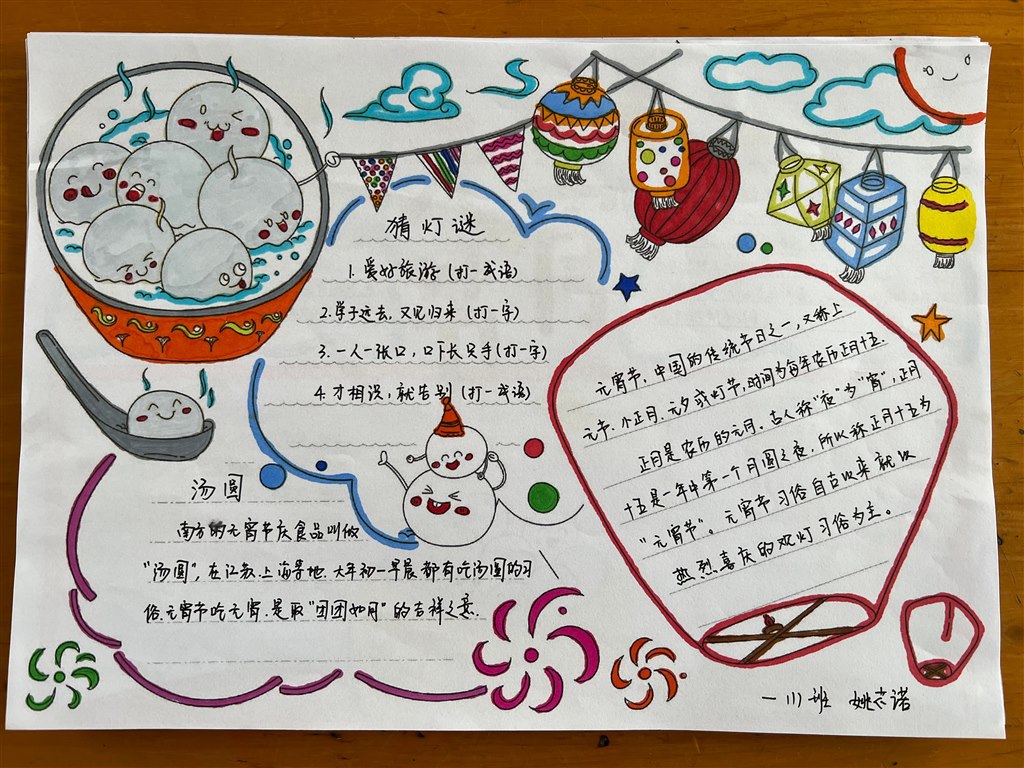 猜灯谜
1. 爱好旅游(打一成语)
2. 学子远去,又见归来(打一字)
3. 一人一张口,口下长只手(打一字)
4 才相识,就告别(打一成语)
汤圆
南方的元宵节庆食品叫做
"汤圆",在江苏、上海等地、大年初一早晨都有吃汤圆的习
俗.元宵节吃元宵.是取"团团如月"的吉祥之意.
元宵节,中国的传统节日之一,又称上
元节、小正月、元夕或灯节,时间为每年农历正月十五.
正月是农历的元月、古人称"夜"为"宵",正月
十五是一年中第一个月圆之夜,所以称正月十五为
"元宵节"。元宵节习俗自古以来就以
热烈喜庆的观灯习俗为主。
一 班 姚 诺